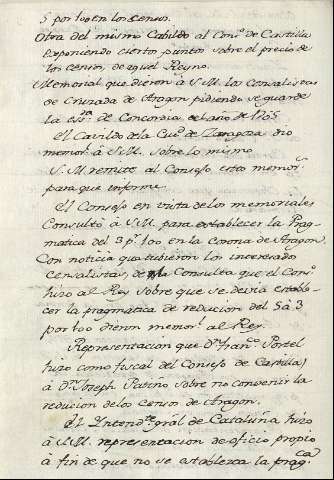 5 por 100 en los censos.
Otra del mismo Cabildo al Consº de Castilla
Exponiendo ciertos puntos sobre el precio de
los censos de aquel Reyno.
Memorial que dieron à S.M. los Censalistas
de Cruzada de Aragon pidiendo se guarde
la Escrª de Concordia del año de 1705
El Cavildo de la Ciuᵈ de Zaragoza dio
memorˡ à S.M. sobre lo mismo
S.M. remite al Consejo estos memorˢ
para que informe.
El Consejo en vista de los memoriales
Consultó à S.M. para establecer la Prag-
matica del 3 pʳ 100 en la corona de Aragon.
Con noticia que tubieron los interesados
censalistas, de la Consulta que el Consº
hizo al Rey sobre que se devia estable-
cer la pragmatica de reducion del 5 à 3
por 100 dieron memorˡ al Rey.
Representacion que Dⁿ Franᶜᵒ Portel
hizo como fiscal del Consejo de Castilla
à Dⁿ Joseph Patino sobre no convenir la
reducion de los censos de Aragon.
El Intendᵗᵉ gràl de Cataluña hizo
à S.M. representacion de oficio propio
à fin de que no se establezca la pragᶜᵃ